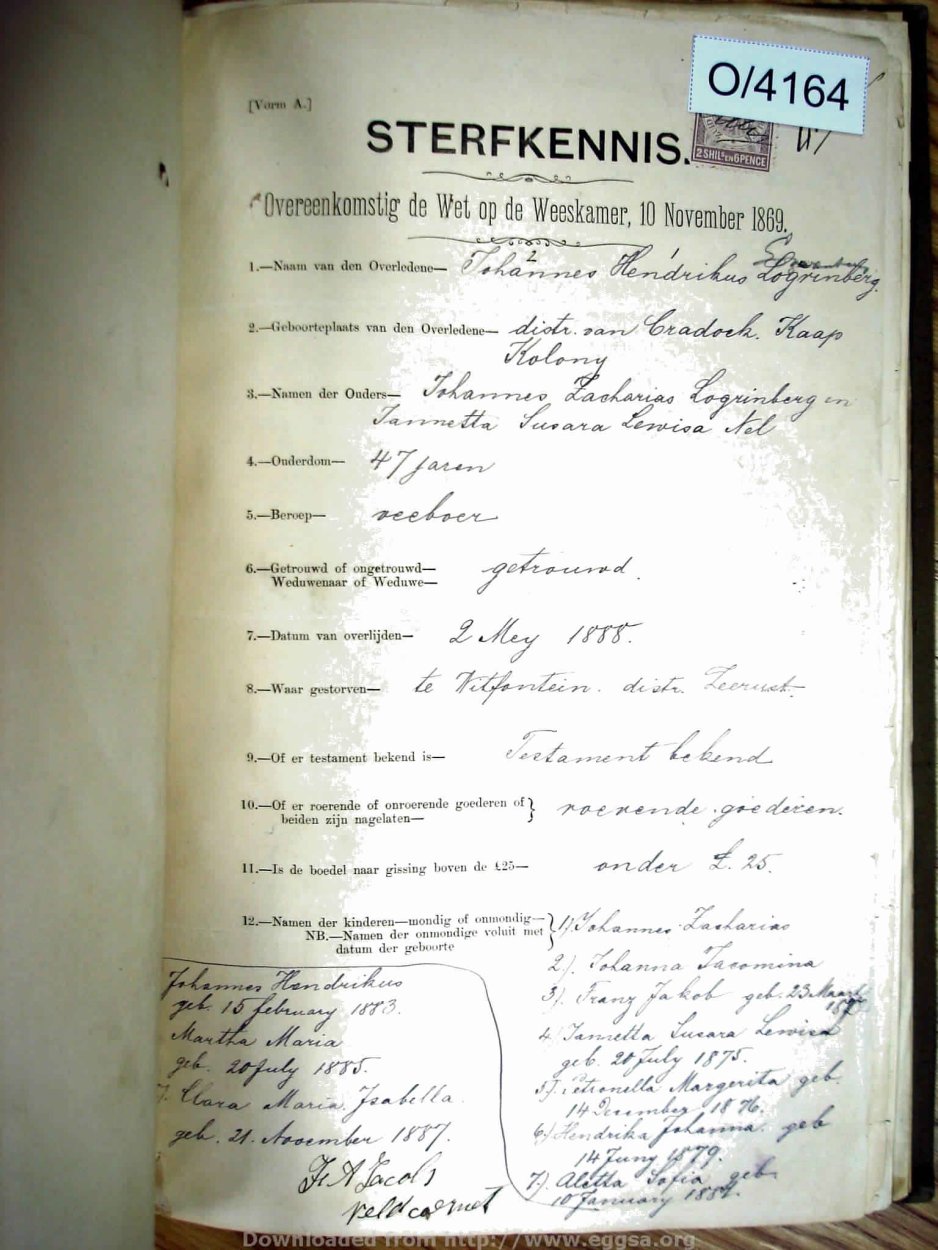 O/4164
[Vorm A.]
STERFKENNIS.
2 SHILS EN 6 PENCE
Overeenkomstig de Wet op de Weeskamer, 10 November 1869.
1.—Naam van den Overledene— Johannes Hendrikus Logrinberg
2.—Geboorteplaats van den Overledene— distr. van Cradock. Kaap
Kolony
3.—Namen der Ouders— Johannes Zacharias Logrinberg en
Jannetta Susara Lewisa Nel
4.—Onderdom— 47 jaren
5.—Beroep— veeboer
6.—Getrouwd of ongetrouwd— getrouwd.
Weduwenaar of Weduwe—
7.—Datum van overlijden— 2 Mey 1888.
8.—Waar gestorven— te Witfontein. distr. Zeerust.
9.—Of er testament bekend is— Testament bekend
10.—Of er roerende of onroerende goederen of roerende goederen.
beiden zijn nagelaten—
11.—Is de boedel naar gissing boven de £25— onder £. 25.
12.—Namen der kinderen—mondig of onmondig— 1) Johannes Zacharias
NB.—Namen der onmondige voluit met
datum der geboorte
2). Johanna Jacomina
3). Franz Jakob geb. 23 Maart
4) Jannetta Susara Lewisa
geb. 20 July 1875.
5). Petronella Margerita geb.
14 Desember 1876.
6) Hendrika Johanna. geb
14 Juny 1879.
7) Aletta Sofia geb
10 January
Johannes Hendrikus
geb. 15 february 1883.
Martha Maria
geb. 20 July 1885.
Clara Maria Isabella.
geb. 21. November 1887.
Jacobs
veldcornet
Downloaded from http://www.eggsa.org